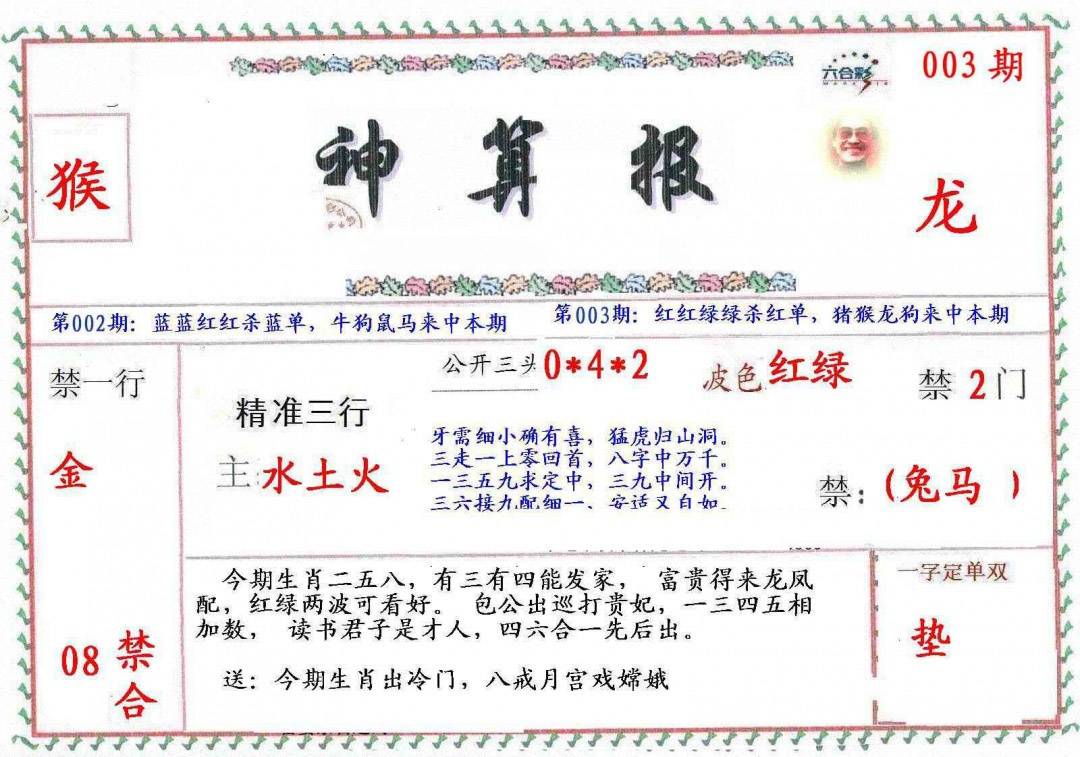 六合彩
003 期
猴
神算报
龙
第002期：蓝蓝红红杀蓝单，牛狗鼠马来中本期
第003期：红红绿绿杀红单，猪猴龙狗来中本期
禁一行
金
08 禁合
精准三行
主：水土火
公开三头 0*4*2
波色 红绿
禁 2 门
牙需细小确有喜，猛虎归山洞。
三走一上零回首，八字中万千。
一三五九求定中，三九中间开。
三六接九配细一、安适又自如。
禁：（兔马 ）
今期生肖二五八，有三有四能发家， 富贵得来龙凤
配，红绿两波可看好。 包公出巡打贵妃，一三四五相
加数， 读书君子是才人，四六合一先后出。
送：今期生肖出冷门，八戒月宫戏嫦娥
一字定单双
垫